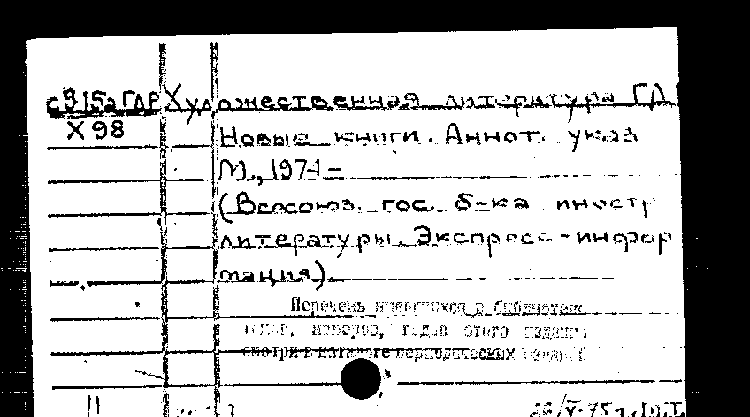 с915аГДР Художественная литература ГД
Х 98
Новые книги. Аннот. указ
М., 197
(Всесоюз. гос. б-ка иностр
литературы. Экспресс-инфор
мация).
Перечень имеющихся в библиотеке
номеров, годов этого издания
смотри в каталоге периодических изданий
11